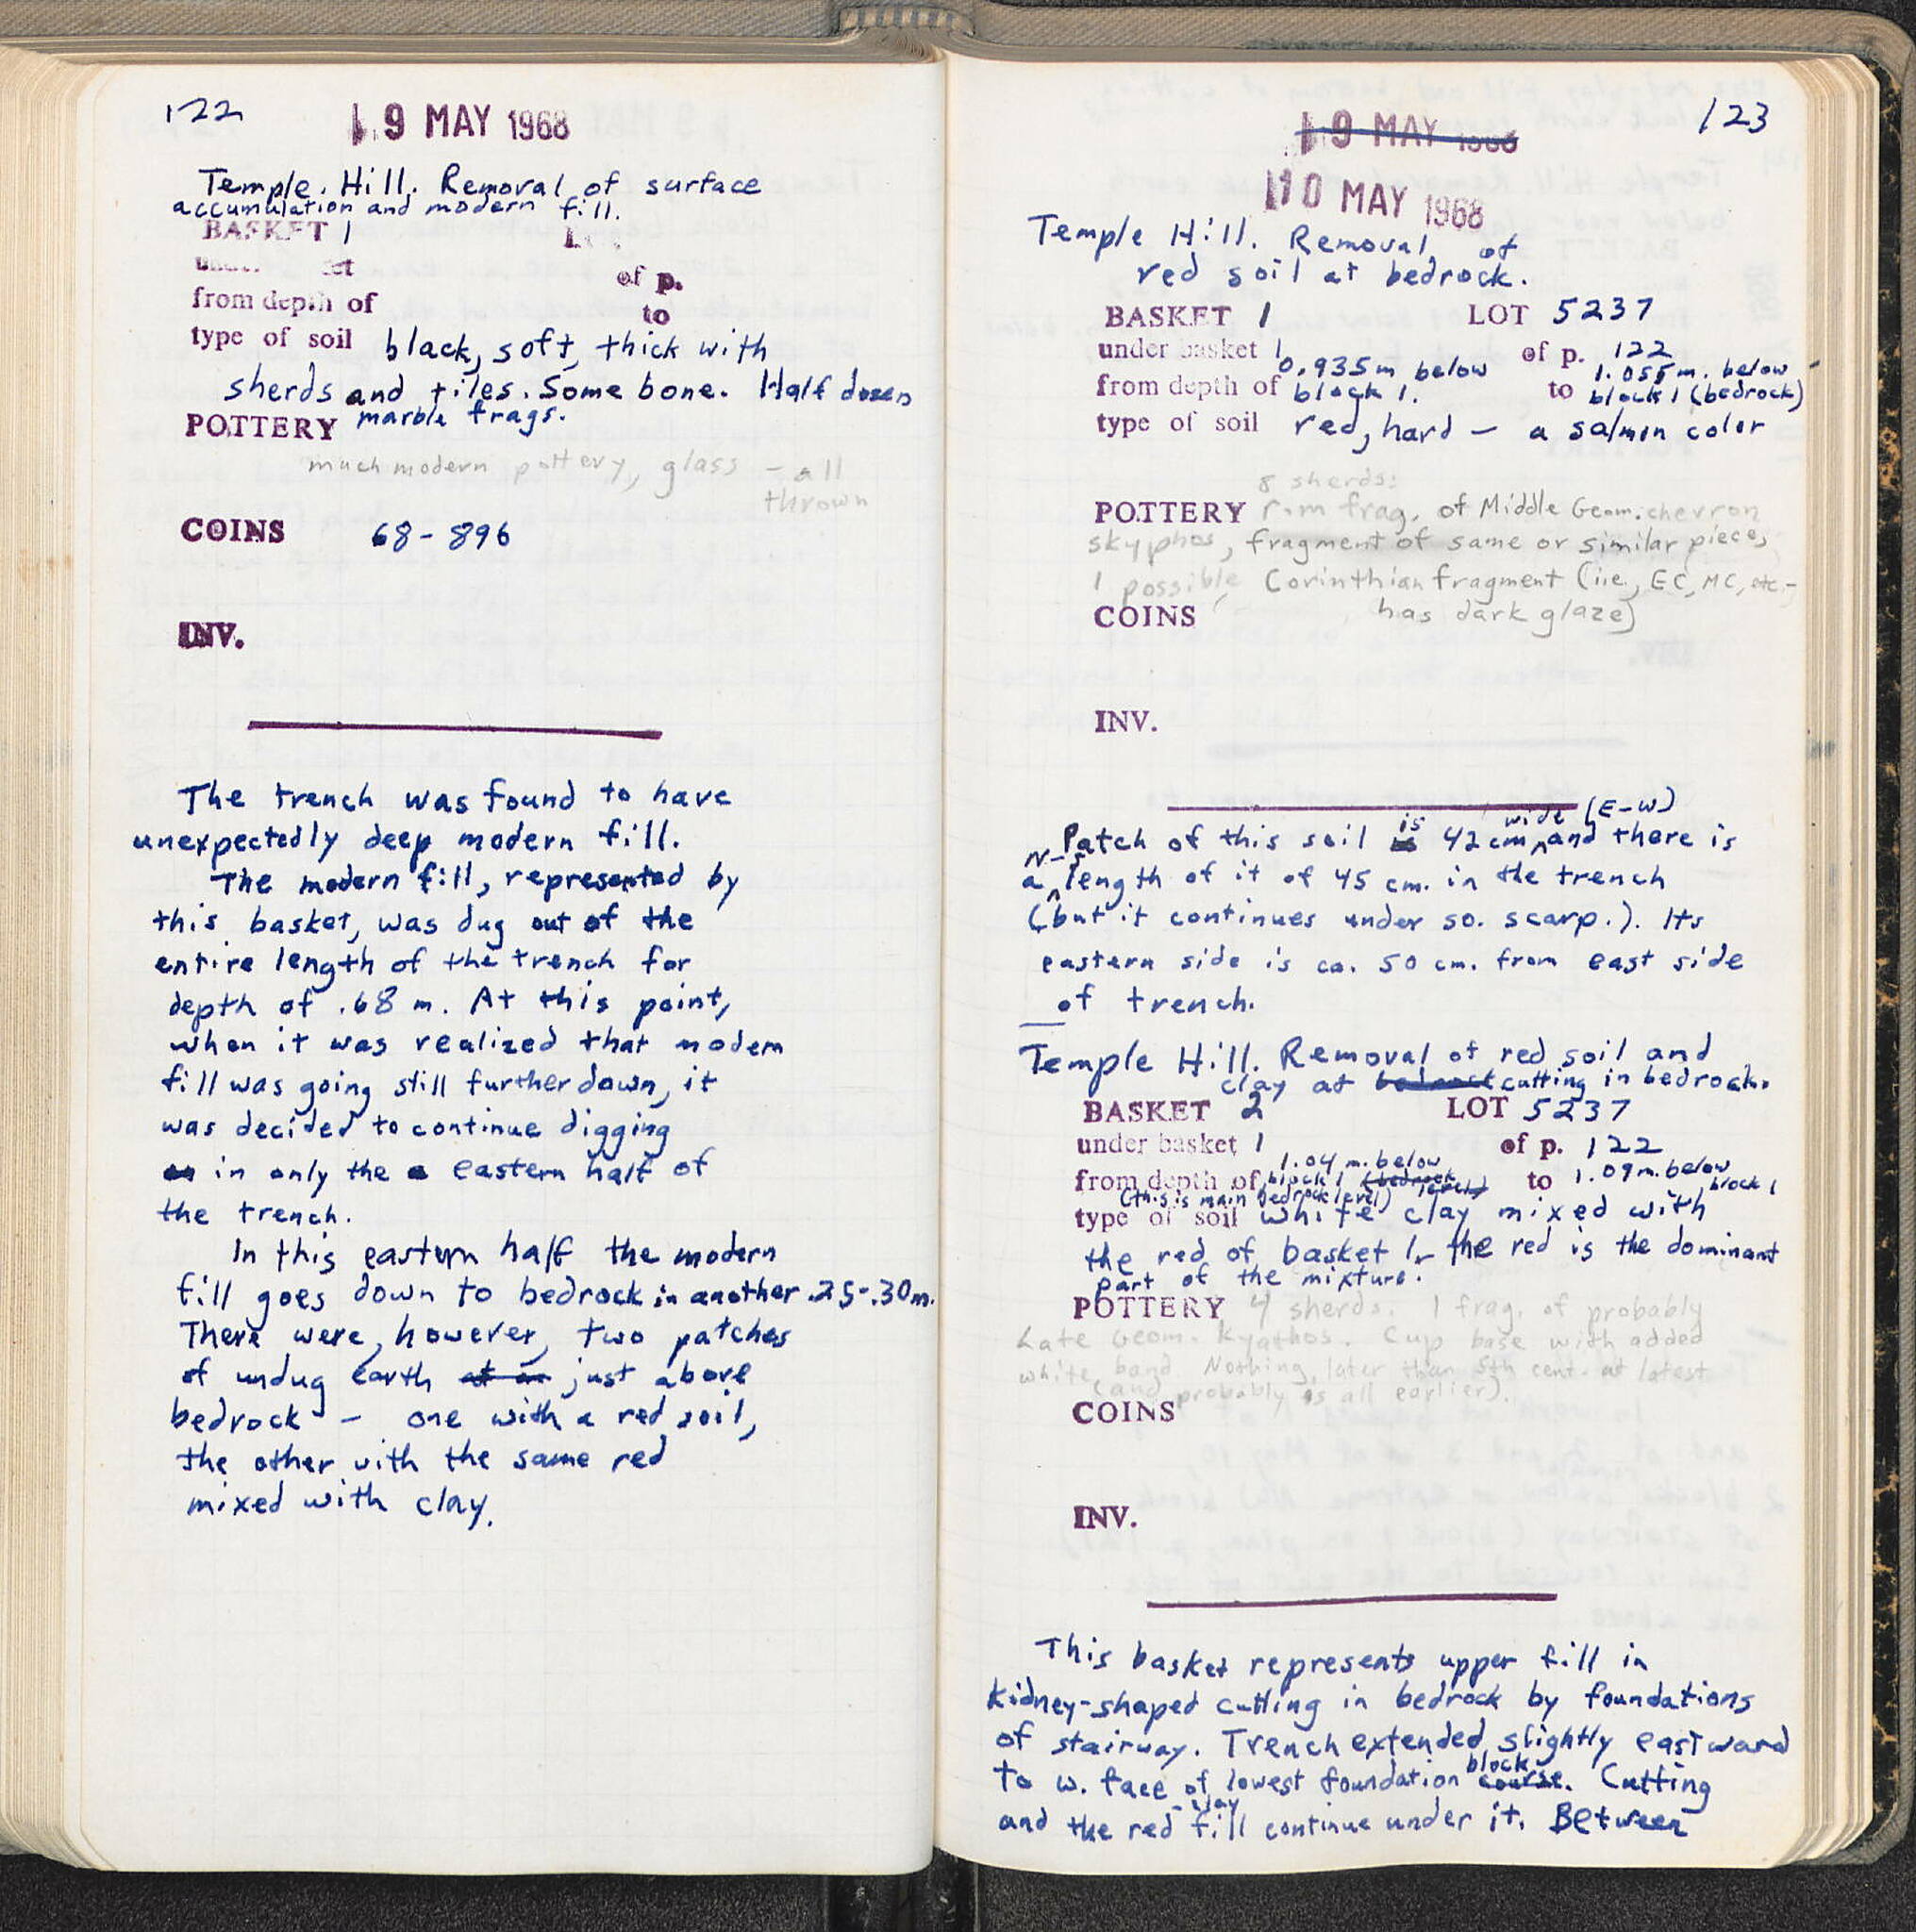 122
19 MAY 1968
Temple Hill. Removal of surface
accumulation and modern fill.
BASKET 1
of p.
from depth of to
type of soil black, soft, thick with
sherds and tiles. Some bone. Half dozen
marble frags.
POTTERY
much modern pottery, glass - all
thrown
COINS 68-896
INV.
The trench was found to have
unexpectedly deep modern fill.
The modern fill, represented by
this basket, was dug out of the
entire length of the trench for
depth of .68 m. At this point,
when it was realized that modern
fill was going still further down, it
was decided to continue digging
in only the eastern half of
the trench.
In this eastern half the modern
fill goes down to bedrock in another .25-.30m.
There were, however, two patches
of undug earth at an just above
bedrock - one with a red soil,
the other with the same red
mixed with clay.
123
19 MAY 1968
10 MAY 1968
Temple Hill. Removal of
red soil at bedrock.
BASKET 1 LOT 5237
under basket 1 of p. 122
from depth of 0.935m below block 1. to 1.055m. below block 1 (bedrock)
type of soil red, hard - a salmon color
8 sherds:
POTTERY rim frag. of Middle Geom. chevron
skyphos, fragment of same or similar piece,
1 possible Corinthian fragment (i.e., EC, MC, etc.-
has dark glaze)
COINS
INV.
Patch of this soil is 42 cm wide (E-W) and there is
a N-S length of it of 45 cm. in the trench
(but it continues under so. scarp.). Its
eastern side is ca. 50 cm. from east side
of trench.
Temple Hill. Removal of red soil and
clay at bedrock cutting in bedrock.
BASKET 2 LOT 5237
under basket 1 of p. 122
from depth of 1.04 m. below block 1 (bedrock level) to 1.09m. below block 1
(this is main bedrock level)
type of soil white clay mixed with
the red of basket 1 - the red is the dominant
part of the mixture.
POTTERY 4 sherds. 1 frag. of probably
Late Geom. kyathos. Cup base with added
white band Nothing later than 5th cent. at latest
(and probably is all earlier).
COINS
INV.
This basket represents upper fill in
kidney-shaped cutting in bedrock by foundations
of stairway. Trench extended slightly eastward
to w. face of lowest foundation course block. Cutting
and the red-clay fill continue under it. Between